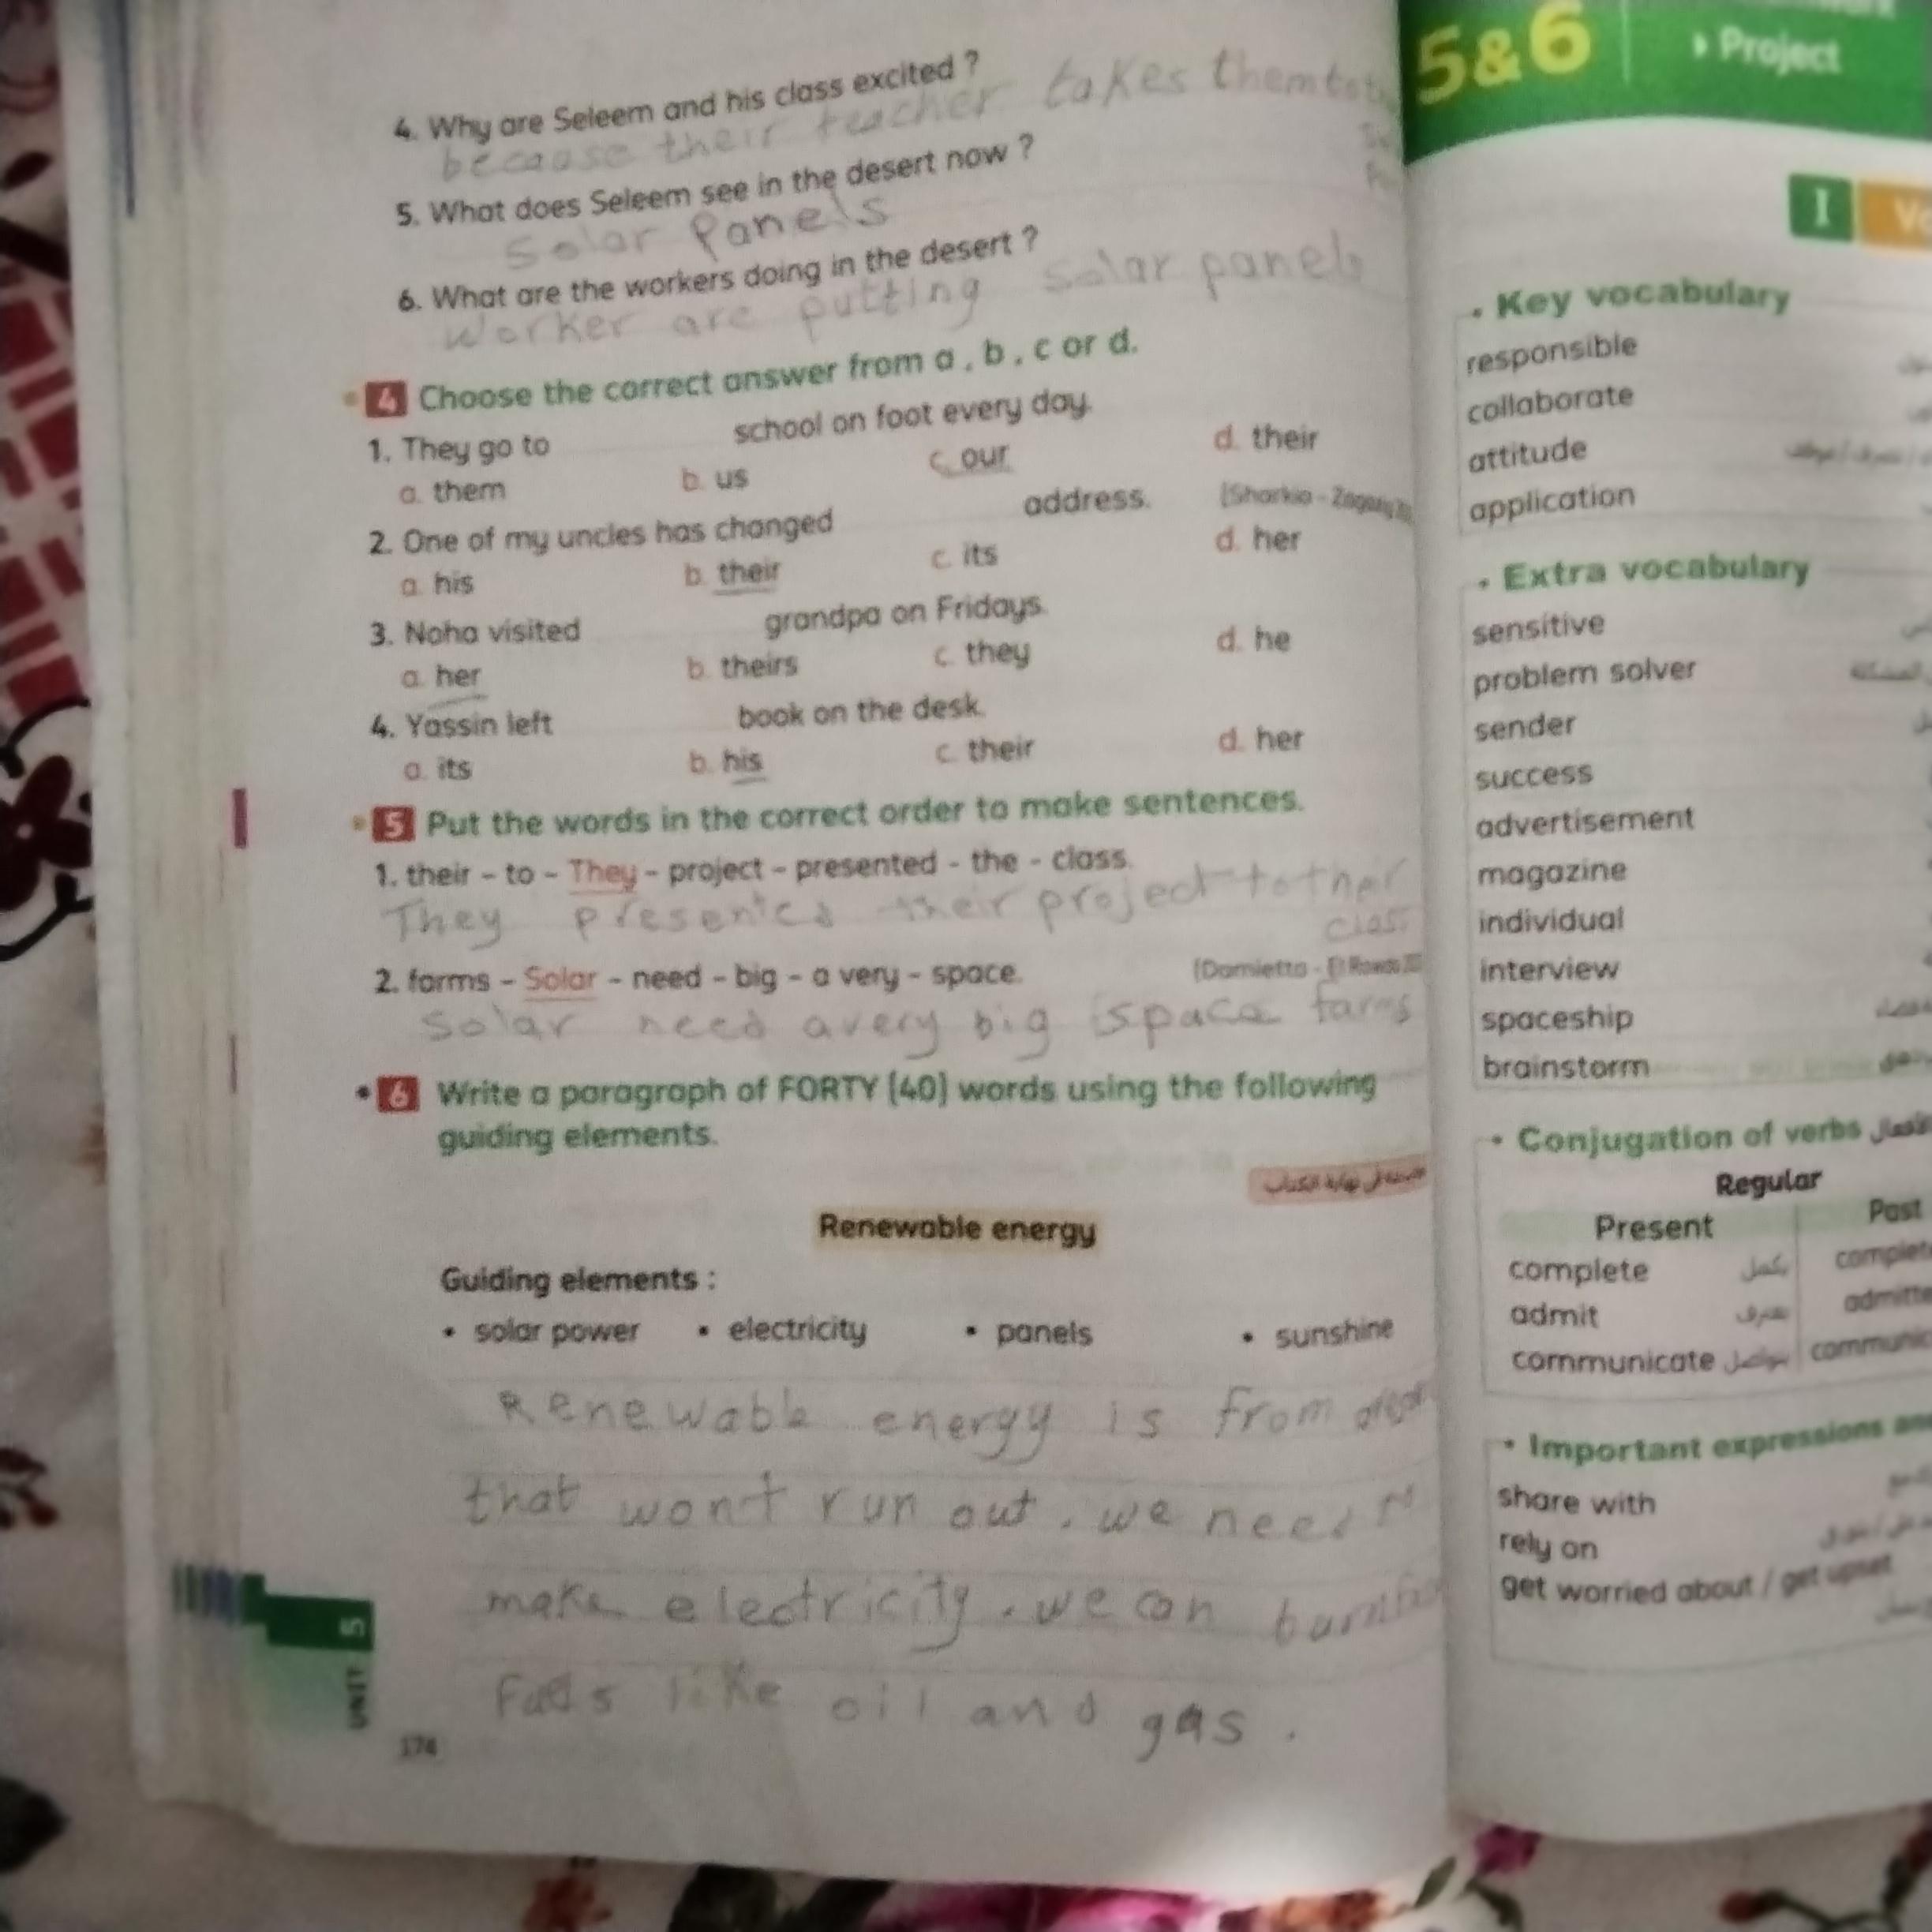 4. Why are Seleem and his class excited ?
because their teacher takes them to
5. What does Seleem see in the desert now ?
Solar Panels
6. What are the workers doing in the desert ?
worker are putting solar panels
4 Choose the correct answer from a , b , c or d.
1. They go to school on foot every day.
a. them b. us c. our d. their
2. One of my uncles has changed address. (Sharkia - Zagazig
a. his b. their c. its d. her
3. Noha visited grandpa on Fridays.
a. her b. theirs c. they d. he
4. Yassin left book on the desk.
a. its b. his c. their d. her
5 Put the words in the correct order to make sentences.
1. their – to – They – project – presented – the – class.
They presented their project to ther
class
2. farms – Solar – need – big – a very – space. (Damietta -
Solar need a very big space farms
6 Write a paragraph of FORTY (40) words using the following
guiding elements.
Renewable energy
Guiding elements :
• solar power • electricity • panels • sunshine
Renewable energy is from
that won't run out . we need
make electricity . we can burn
Fuels like oil and gas .
UNIT 5
174
5&6
Project
1
• Key vocabulary
responsible
collaborate
attitude
application
• Extra vocabulary
sensitive
problem solver
sender
success
advertisement
magazine
individual
interview
spaceship
brainstorm
• Conjugation of verbs
Regular
Present Past
complete يكمل
admit يعترف
communicate يتواصل
• Important expressions
share with
rely on
get worried about / get upset